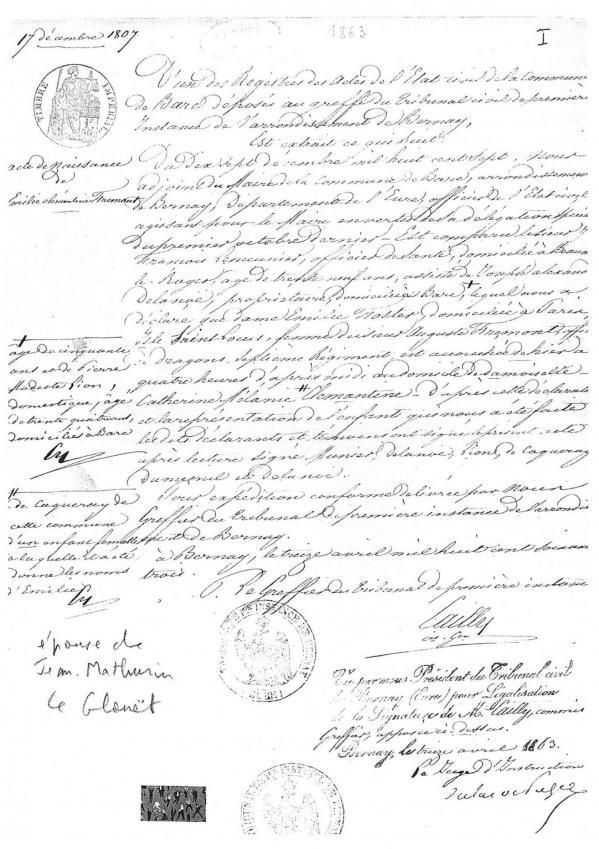 17 décembre 1807
1863
I
TIMBRE IMPERIAL
D'un des Registres des Actes de l'Etat civil de la Commune
de Barc déposés au greffe du Tribunal civil de première
Instance de l'arrondissement de Bernay,
Est extrait ce qui suit
acte de Naissance
de
Emilie clémentine Fromont
Du Dix Sept de cembre mil huit cent Sept, Nous
adjoint du Maire de la Commune de Barc, arrondissement
de Bernay, Département de l'Eure, officier de l'Etat civil
agissant pour le Maire en vertu de sa délégation spéciale
Du premier octobre dernier - Est comparu le sieur
François Lemeunier, officier de santé, domicilié à Beaumont
le Roger, agé de trente neuf ans, assisté de Joseph alexandre
delanoë, propriétaire, domicilié à Barc + lequel nous a
déclaré que dame Emilie domiciliée à Paris
Saint Louis, femme du sieur Auguste Fromont, officier
de Dragons, Septième Régiment, est accouchée de hier à
quatre heures d'après midi au domicile Desamoiselle
Catherine Mélanie # Clémentine - D'après cette déclaration
et la représentation de l'enfant qui nous a été faite
lesdits déclarants et témoins ont signé le présent acte
après lecture signé delanoë, Pion, de Caqueray
dumesnil et delanoë.
+
agé de cinquante
ans et de Pierre
Modeste Pion,
domestique, agé
de trente huit ans,
domicilié à Barc
#
de Caqueray de
cette commune
d'un enfant femelle
à laquelle il a été
donné les noms
d'Emilie
Pour expédition conforme délivrée par Nous
Greffier du tribunal de première instance de l'arrondis
sement de Bernay.
à Bernay, le treize avril mil huit cent soixante
trois.
Le Greffier du tribunal de première instance
Cailly
épouse de
Jean. Mathurin
Le Clouët
Vu par nous Président du Tribunal civil
de Bernay (Eure) pour Législation
de la Signature de M. Cailly, commis
Greffier, apposée ci-dessus.
Bernay, le treize avril 1863.
Le Juge d'Instruction